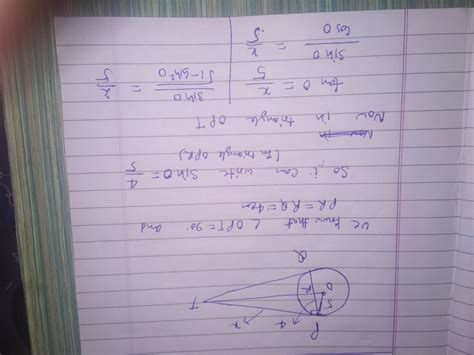 P
4
x
T
5
O
R
Q
We know that ∠OPT = 90° and
PR = RQ = 4cm
So i can write Sin θ = 4/5
(In triangle OPR)
Now in triangle OPT
tan θ = 5/x
sin θ / √1-sin²θ = x/5
sin θ / cos θ = x/5